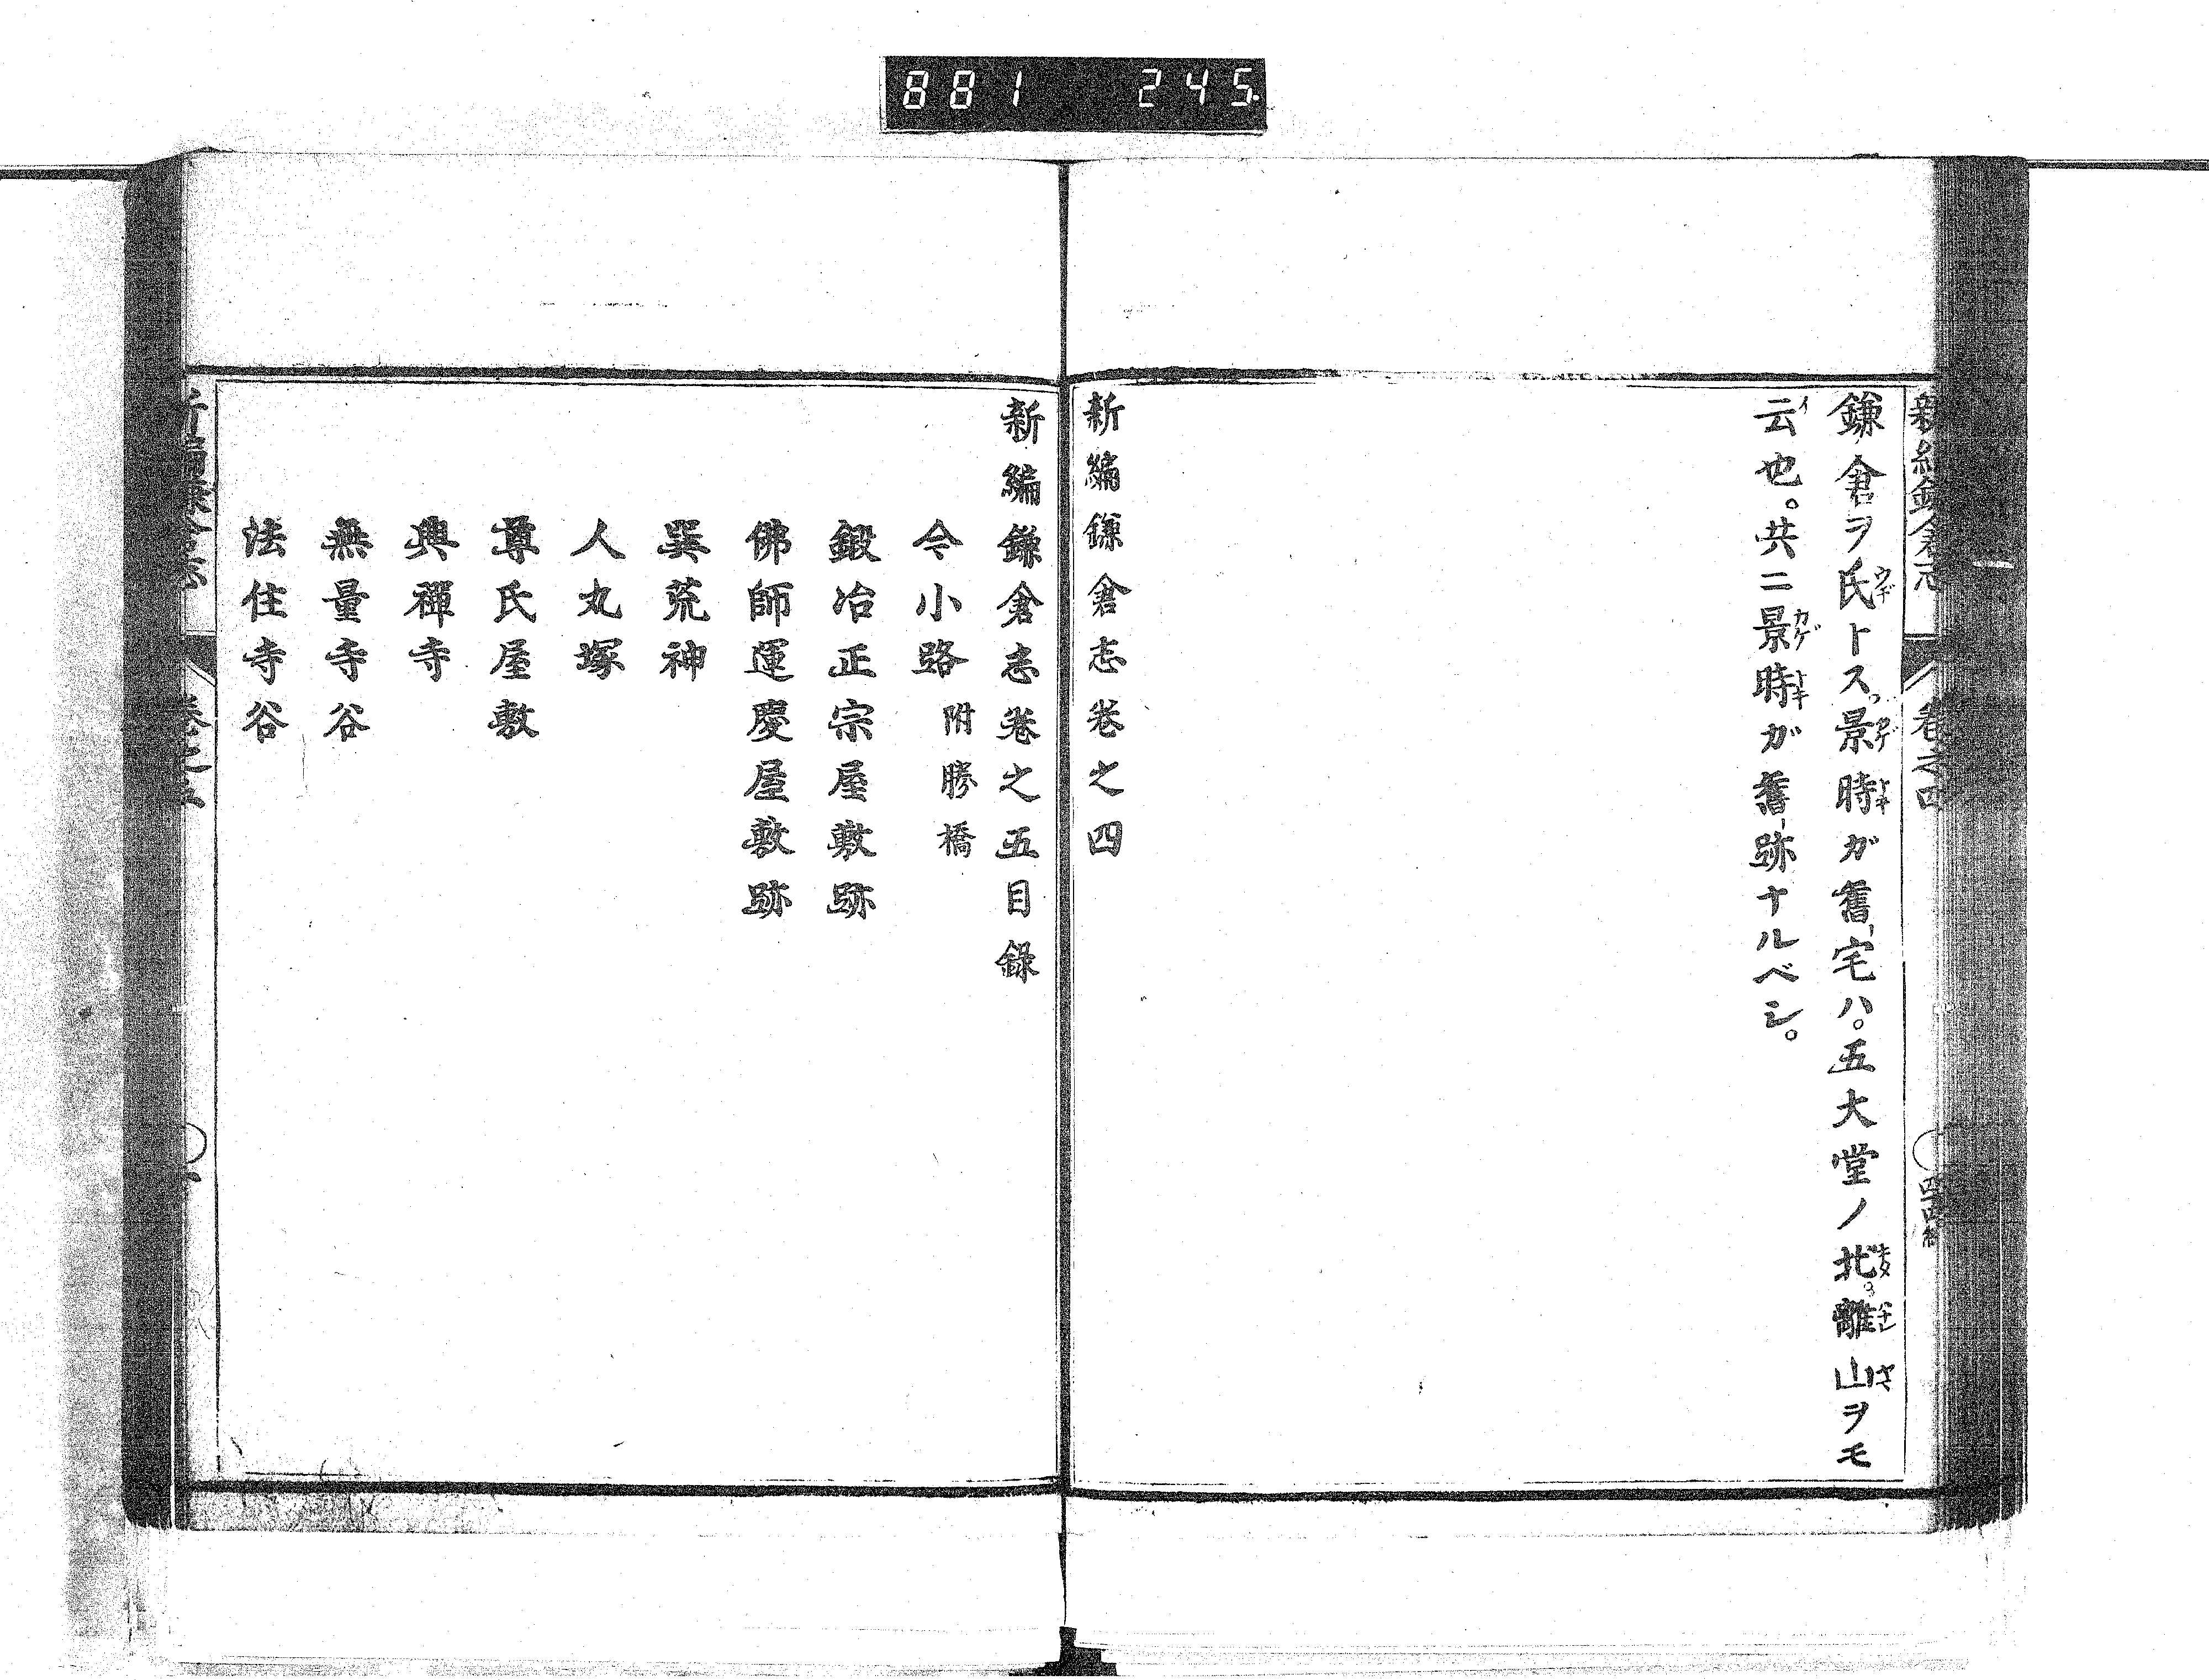 881 245
鎌倉ヲ氏トス。景時ガ舊宅ハ。五大堂ノ北。離山ヲモ
云也。共ニ景時ガ舊跡ナルベシ。
新編鎌倉志卷之四
新編鎌倉志卷之五目録
今小路 附勝橋
鍛冶正宗屋敷跡
佛師運慶屋敷跡
巽荒神
人丸塚
尊氏屋敷
興禪寺
無量寺谷
法住寺谷